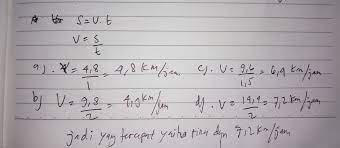 S = V . t
V = S/t
a). V = 4,8/1 = 4,8 km/jam c). V = 9,6/1,5 = 6,4 km/jam
b) V = 9,8/2 = 4,9 km/jam d). V = 14,4/2 = 7,2 km/jam
jadi yang tercepat yaitu tina dgn 7,2 km/jam